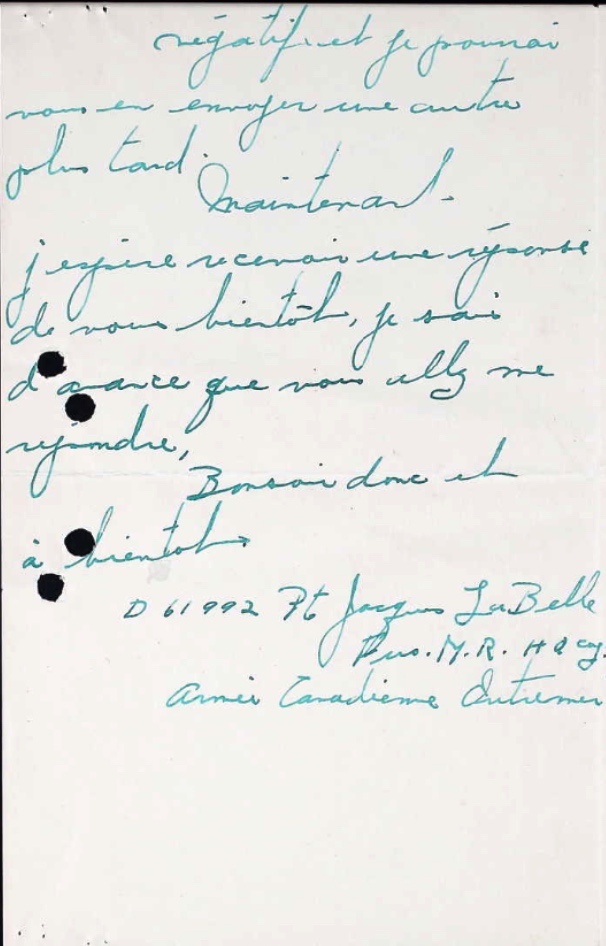 négatif et je pourrai
vous en envoyer une autre
plus tard.
Maintenant.
j'espère recevoir une réponse
de vous bientôt, je sais
d'avance que vous allez me
répondre,
Bonsoir donc et
à bientôt.
D 61992 Pt Jacques LaBelle
Fus. M.R. HQ Coy.
Armée Canadienne Outremer